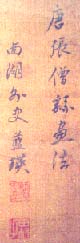 唐張僧繇畫法
西湖外史藍瑛